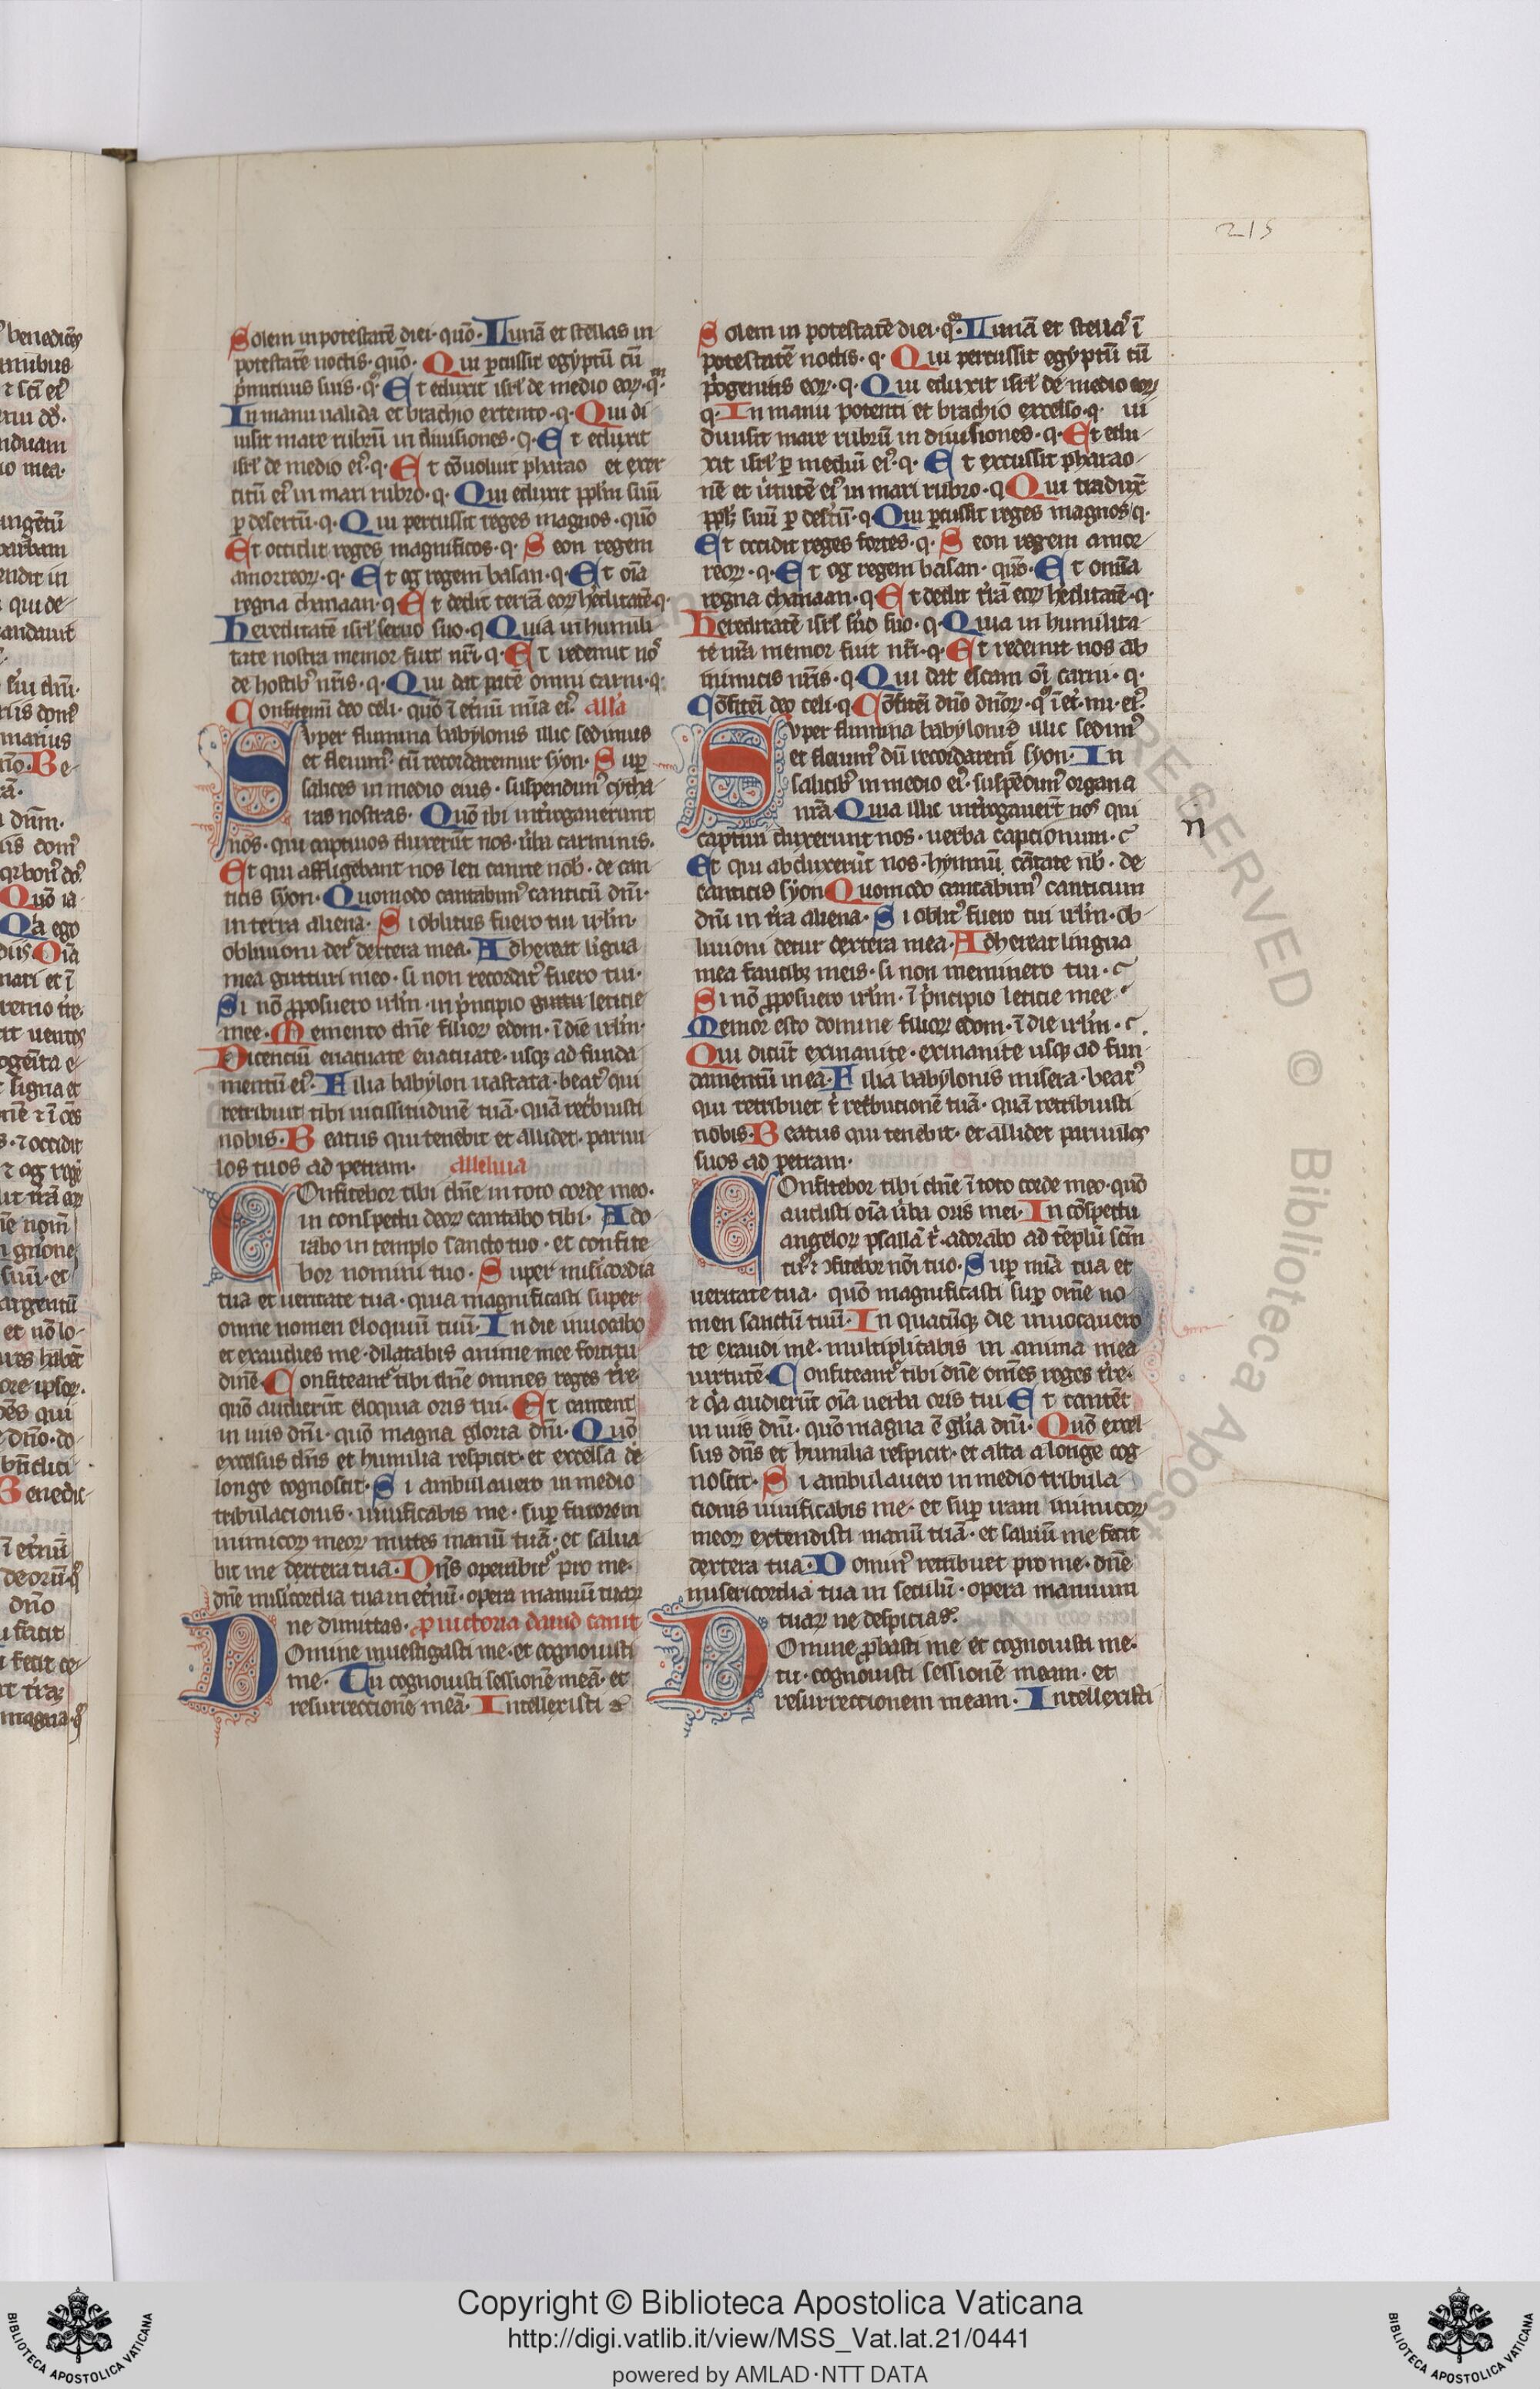 215
Solem in potestatē diei· quō· Lunā et stellas in
potestatē noctis· quō· Qui ꝑcussit egyptū cū
pͥmitiuis suis· qͦ· Et eduxit isrl̄ de medio eoꝝ· qͦ·
In manu ualida et brachio extento· q· Qui di
uisit mare rubrū in diuisiones· q· Et eduxit
isrl̄ de medio eiꝰ· q· Et cōuoluit pharao et exer
citū eiꝰ in mari rubro· q· Qui eduxit ppl̄m suū
ꝑ desertū· q· Qui percussit reges magnos· quō
Et occidit reges magnificos· q· Seon regem
amorreoꝝ· q· Et og regem basan· q· Et oīa
regna chanaan· q Et dedit terrā eoꝝ h̓editatē· q·
Hereditatē isrl̄ seruo suo· q Quia in humili
tate nostra memor fuit nrī· q· Et redemit noꝰ
de hostibꝰ nrīs· q· Qui dat panē omni carni· q·
Confitemī deo celi· quō ī et̓nū mīa eiꝰ alla
Super flumina babylonis illic sedimus
et fleuimꝰ· cū recordaremur syon· Suꝑ
salices in medio eius· suspendimꝰ cytha
ras nostras· Quō ibi int̓rogauerunt
nos· qui captiuos duxerūt nos· u̓ba carminis·
Et qui affligebant nos leti canite nob̄· de can
ticis syon· Quomodo cantabimꝰ canticū dnī·
in terra aliena· Si oblitus fuero tui irl̄m·
obliuioni detꝰ dextera mea· Adhereat ligua
mea gutturi meo· si non recordatꝰ fuero tui·
Si nō ꝓposuero irl̄m· in pͥncipio guttu leticie
mee· Memento dn̄e filioꝝ edom· ī die irl̄m·
Dicentiū euacuate euacuate· usqꝫ ad funda
mentū eiꝰ· Filia babylon uastata· beatꝰ qui
retribuit tibi uicissitudinē tuā· quā ret̓buisti
nobis· Beatus qui tenebit et allidet· paruu
los tuos ad petram· alleluia
Confitebor tibi dn̄e in toto corde meo·
in conspectu deoꝝ cantabo tibi· Ado
rabo in templo sancto tuo· et confite
bor nomini tuo· Super misicordia
tua et ueritate tua· quia magnificasti super
omne nomen eloquiū tuū· In die inuocabo
et exaudies me· dilatabis anime mee fortitu
dinē· Confiteantꝰ tibi dn̄e omnes reges tr̓re·
quō audierūt eloquia oris tui· Et cantent
in uiis dnī· quō magna gloria dnī· Quō
excelsus dn̄s et humilia respicit· et excelsa de
longe cognoscit· Si ambulauero in medio
tribulacionis· uiuificabis me· suꝑ furorem
inimicoꝝ meoꝝ mittes manū tuā· et salua
bit me dextera tua· Dn̄s operabitꝰ pro me·
dn̄e misi̓cordia tua in et̓nū· opera manuū tuaꝝ
ne dimittas· ꝓ uictoria dauid canit
Domine inuestigasti me· et cognouisti
me· Tu cognouisti sessionē meā· et
resurrectionē meā· Intellexisti
Solem in potestatē diei· qͦ· Lunā et stellaꝰ ī
potestatē noctis· q· Qui percussit egyptū cū
pͥmogenitis eoꝝ· q· Qui eduxit isrl̄ de medio eoꝝ
q· In manu potenti et brachio excelso· q· ui
diuisit mare rubrū in diuisiones· q· Et edu
xit isrl̄ ꝑ mediū eiꝰ· q· Et excussit pharao
nē et u̓tutē eiꝰ in mari rubro· q Qui traduxͭ
ppl̄ꝫ suū ꝑ des̓tū· q Qui ꝑcussit reges magnos q·
Et occidit reges fortes· q· Seon regem amor
reoꝝ· q· Et og regem basan· quō· Et omīa
regna chanaan· q Et dedit tr̓rā eoꝝ h̓editatē· q·
Hereditatē isrl̄ s̓uo suo· q· Quia in humilita
te nrā memor fuit nrī· q· Et redemit nos ab
inimicis nrīs· q· Qui dat escam oī carni· q·
Cōfitenī deo celi· q Cōfitenī dn̄o dn̄oꝝ· qͦ ī et̓· mi· eiꝰ·
Super flumina babylonis illic sedimꝰ
et fleuimꝰ dū recordaremꝰ syon· In
salicibꝰ in medio eiꝰ· suspēdimꝰ organa
nrā· Quia illic int̓rogauerͭ nos qui
captiui duxerunt nos· uerba cantionum·
Et qui abduxerūt nos· hymnū cātate nb̄· de
canticis syon Quomodo cantabimꝰ canticum
dnī in tr̓ra aliena· Si oblitꝰ fuero tui irl̄m· ob
liuioni detur dextera mea· Adhereat lingua
mea faucibꝫ meis· si non meminero tui·
Si nō ꝓposuero irl̄m· ī pͥncipio leticie mee·
Memor esto domine filioꝝ edom· ī die irl̄m·
Qui dicūt exinanite· exinanite usqꝫ ad fun
damentū in ea· Filia babylonis misera· beatꝰ
qui retribuet t̓ ret̓bucionē tuā· quā retribuisti
nobis· Beatus qui tenebit· et allidet paruulos
suos ad petram·
Confitebor tibi dn̄e ī toto corde meo· quō
audisti oīa u̓ba oris mei· In cōspectu
angeloꝝ psallā t̓· adorabo ad tēplū scm̄
tuū· ⁊ ꝯfitebor nōi tuo· Suꝑ mīa tua et
ueritate tua· quō magnificasti suꝑ omē no
men sanctū tuū· In quacūqꝫ die inuocauero
te exaudi me· multiplicabis in anima mea
uirtutē· Confiteantꝰ tibi dn̄e om̄es reges tr̓re·
⁊ qͥa audierūt oīa uerba oris tui Et cantēt
in uiis dnī· quō magna ē gl̄ia dnī· Quō excel
sus dn̄s et humilia respicit· et alta a longe cog
noscit· Si ambulauero in medio tribula
cionis uiuificabis me· et suꝑ iram inimicoꝝ
meoꝝ extendisti manū tuā· et saluū me fecit
dextera tua· Dominꝰ retribuet pro me· dn̄e
misericordia tua in seculū· opera manuum
tuaꝝ ne despicias·
Domine ꝓbasti me et cognouisti me·
tu· cognouisti sessionē meam· et
resurrectionem meam· Intellexisti
n
RESERVED © Biblioteca Apost
Copyright © Biblioteca Apostolica Vaticana
http://digi.vatlib.it/view/MSS_Vat.lat.21/0441
powered by AMLAD·NTT DATA
BIBLIOTECA APOSTOLICA VATICANA
BIBLIOTECA APOSTOLICA VATICANA